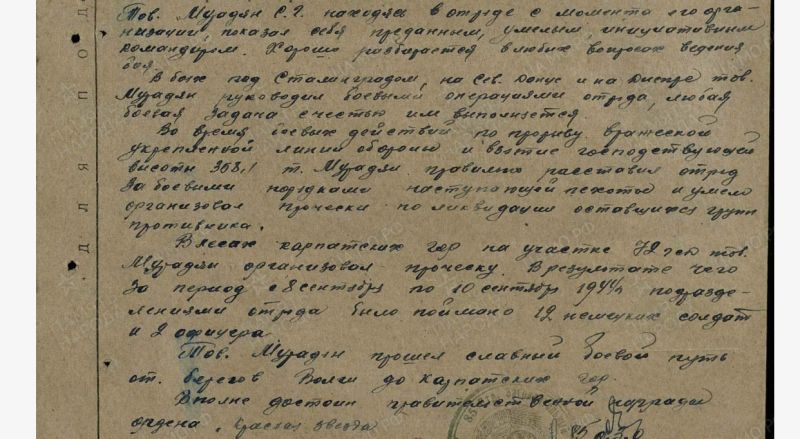 Тов. Мурадян С.Г. находясь в отряде с момента его орга-
низации, показал себя преданным, умелым, инициативным
командиром. Хорошо разбирается в любых вопросах ведения
боя.
В боях под Сталинградом, на Сев. Донце и на Днепре тов.
Мурадян руководил боевыми операциями отряда, любая
боевая задача с честью им выполняется.
Во время боевых действий по прорыву вражеской
укрепленной линии обороны и взятие господствующей
высоты 358,1 т. Мурадян правильно расставил отряд
за боевыми порядками наступающей пехоты и умело
организовал прочески по ликвидации оставшихся групп
противника.
В лесах карпатских гор на участке 72 гсд тов.
Мурадян организовал проческу. В результате чего
за период с 8 сентября по 10 сентября 1944 г подразде-
лениями отряда было поймано 12 немецких солдат
и 2 офицера
Тов. Мурадян прошел славный боевой путь
от берегов Волги до карпатских гор.
Вполне достоин правительственной награды
ордена „Красная звезда
ДЛЯ ПОД